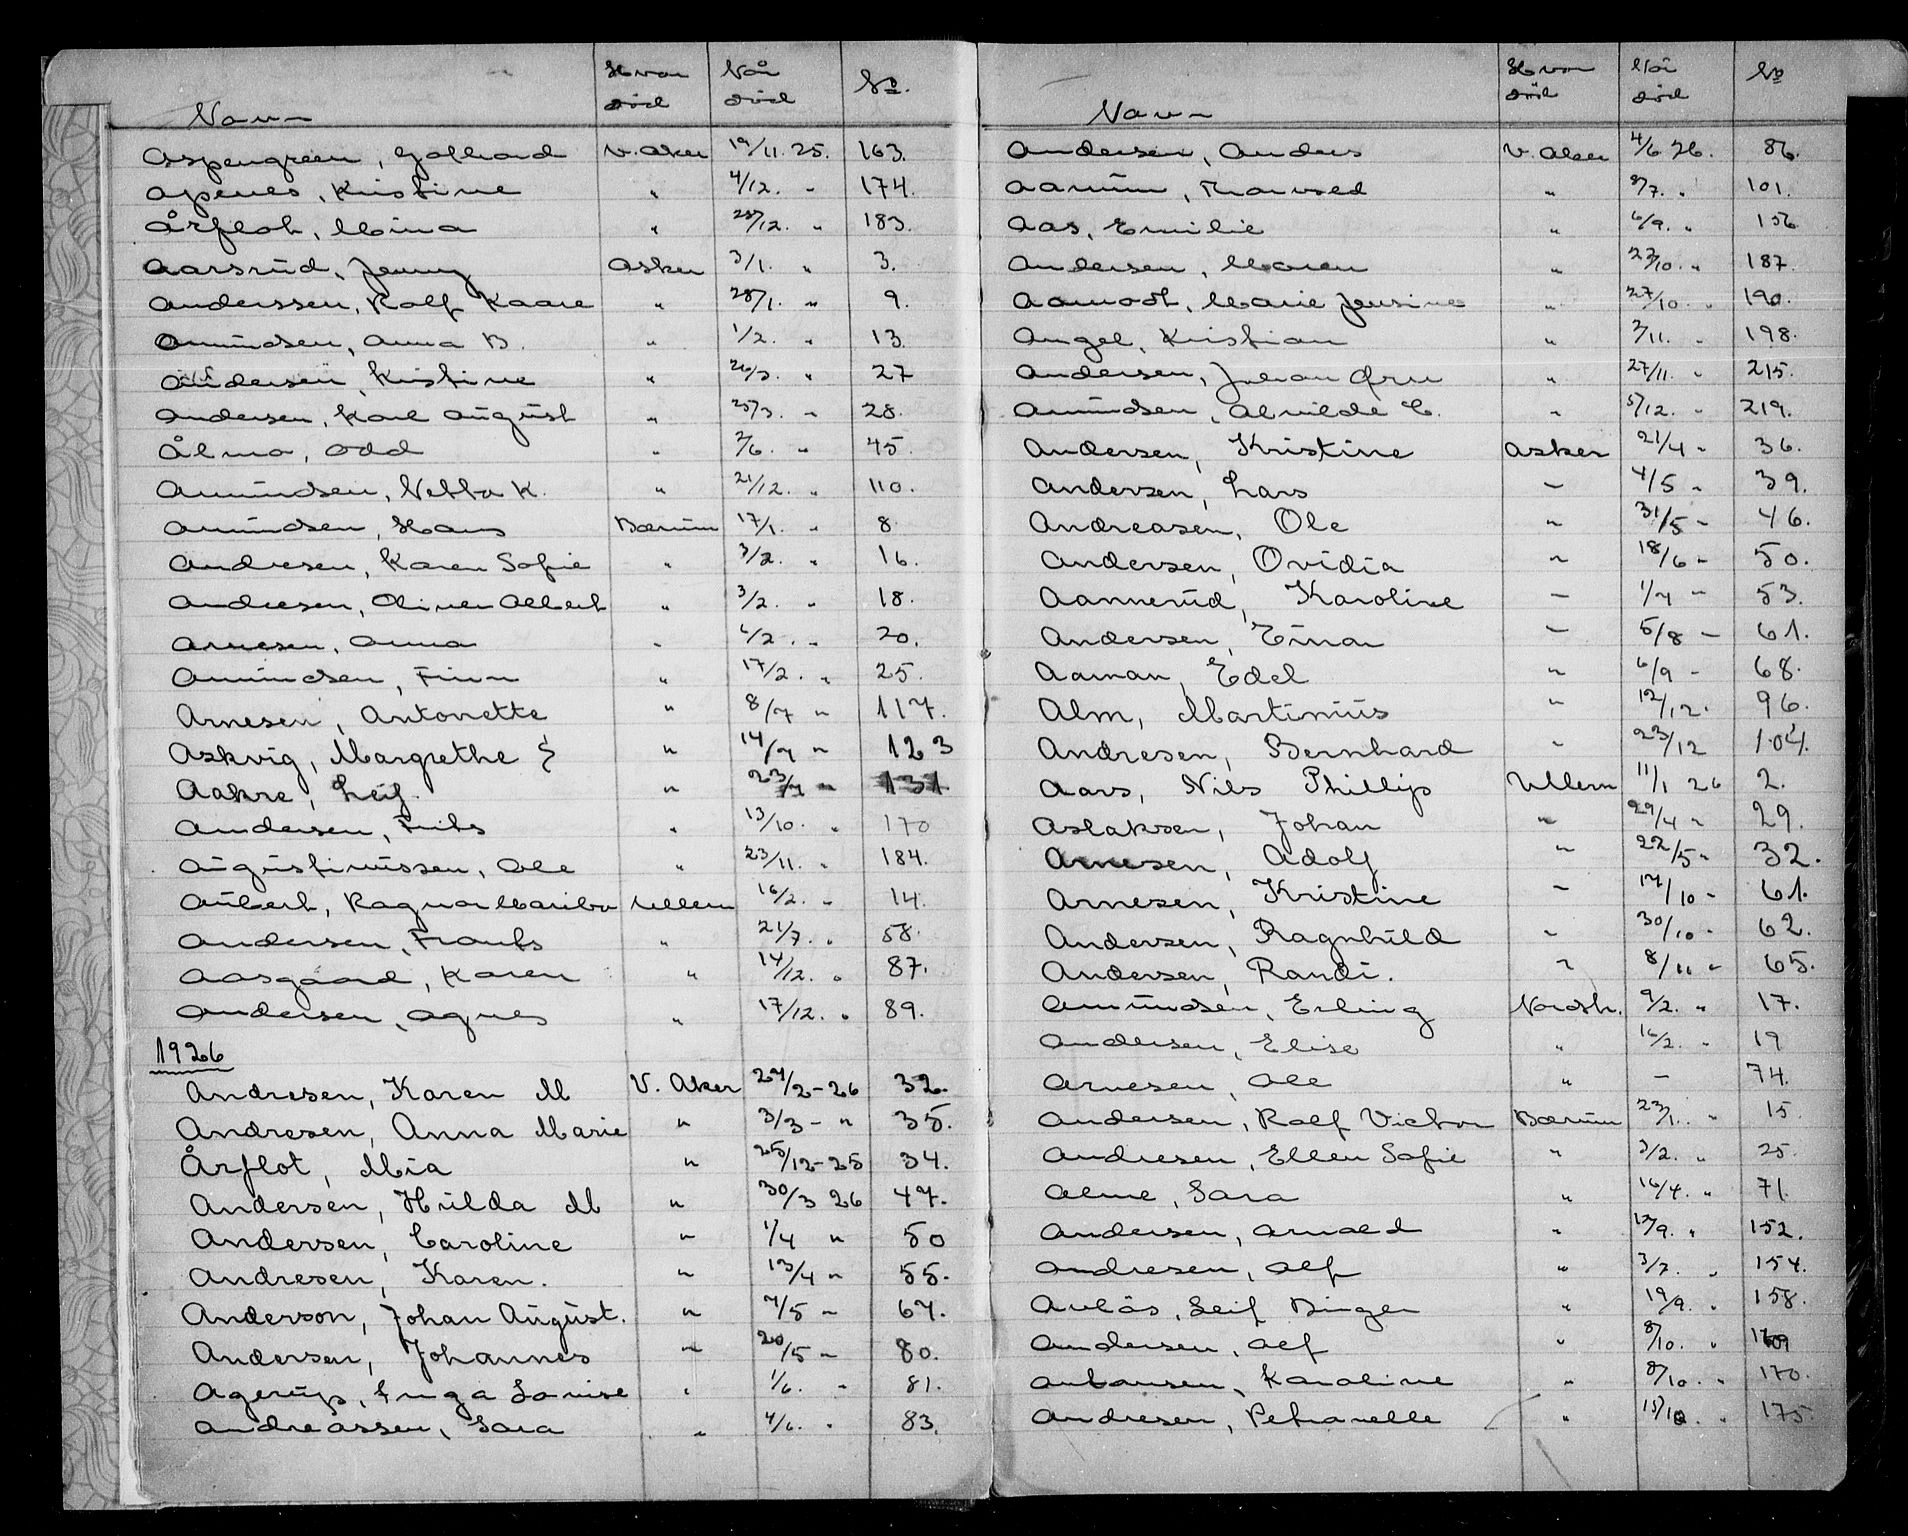 Navn Hvor død Når død No.
Aspengreen, Gothard V. Aker 19/11. 25. 163.
Apenes, Kristine " 4/12. " 174.
Årflot, Mina " 25/12. " 183.
Aarsrud, Jenny Asker 3/1. " 3.
Anderssen, Rolf Kaare " 28/1. " 9.
Amundsen, Anna B. " 1/2. " 13.
Andersen, Kristine " 26/3. " 27
Andersen, Karl August " 25/3. " 28.
Ålmo, Odd " 2/6. " 45.
Amundsen, Netta K. " 21/12. " 110.
Amundsen, Hans Bærum 17/1. " 8.
Andresen, Karen Sofie " 3/2. " 16.
Andresen, Oliver Albert " 3/2. " 18.
Arnesen, Anna " 6/2. " 20.
Amundsen, Finn " 17/2. " 25.
Arnesen, Antonette " 8/7 " 117.
Askvig, Margrethe " 14/7 " 123
Aakre, Leif. " 23/7 " 131
Andersen, Frits " 13/10. " 170
Augustinussen, Ole " 23/11. " 184.
Aubert, Ragnar Maribo Ullern 16/2. " 14.
Andersen, Frants " 21/7. " 58.
Aasgaard, Karen " 14/12. " 87.
Andersen, Agnes " 17/12. " 89.
1926
Andresen, Karen M V. Aker 27/2 - 26 32.
Andresen, Anna Marie " 3/3 - " 35.
Årflot, Mia " 25/12 - 25 34.
Andersen, Hulda M " 30/3 26 47.
Andersen, Caroline " 1/4 " 50
Andresen, Karen. " 13/4 " 55.
Anderson, Johan August. " 7/5 " 67.
Andersen, Johannes " 20/5 " 80.
Agerup, Inga Lovise " 1/6. " 81.
Andreassen, Sara " 4/6. " 83.
Navn Hvor død Når død No
Andersen, Anders V. Aker 4/6 26. 86.
Aarum, Thorvald " 8/7. " 101.
Aas, Emilie " 6/9. " 156
Andersen, Maren " 27/10. " 187.
Aamodt, Marie Jensine " 27/10. " 190.
Angel, Kristian " 2/11. " 198.
Andersen, Johan Ørn " 27/11. " 215.
Amundsen, Alvilde C. " 5/12. " 219.
Andersen, Kristine Asker 21/4 " 36.
Andersen, Lars " 4/5 " 39.
Andreasen, Ole " 31/5 " 46.
Andersen, Ovidia " 18/6 " 50.
Aannerud, Karoline " 1/7 " 53.
Andersen, Einar " 5/8 " 61.
Aaman, Edel " 6/9 " 68.
Alm, Martinius " 12/12. 96.
Andresen, Bernhard " 23/12 104.
Aars, Nils Phillip Ullern 11/1 26 2.
Aslaksen, Johan " 29/4 " 29.
Arnesen, Adolf " 22/5 " 32.
Arnesen, Kristine " 17/10 " 61.
Andersen, Ragnhild " 30/10 " 62.
Andersen, Randi. " 8/11 " 65.
Amundsen, Erling Nordstr. 9/2. " 17.
Andersen, Elise " 16/2. " 19
Arnesen, Ole " - 74.
Andersen, Rolf Victor Bærum 23/1. " 15
Andresen, Ellen Sofie " 3/2. " 25
Alme, Sara " 16/4. " 71.
Andersen, Arnold " 12/9. " 152.
Andresen, Alf " 3/7. " 154.
Aulås, Leif Binger " 19/9. " 158.
Andersen, Alf " 8/10. " 169
Antonsen, Karoline " 8/10. " 170.
Andresen, Petronelle " 15/10 " 175.